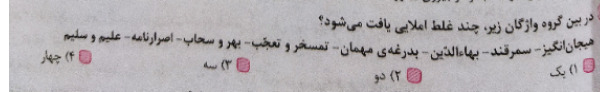 در بین گروه واژگان زیر، چند غلط املایی یافت می‌شود؟
هیجان‌انگیز- سمرقند- بهاءالدّین- بدرغه‌ی مهمان- تمسخر و تعجّب- بهر و سحاب- اصرارنامه- علیم و سلیم
۱) یک ۲) دو ۳) سه ۴) چهار